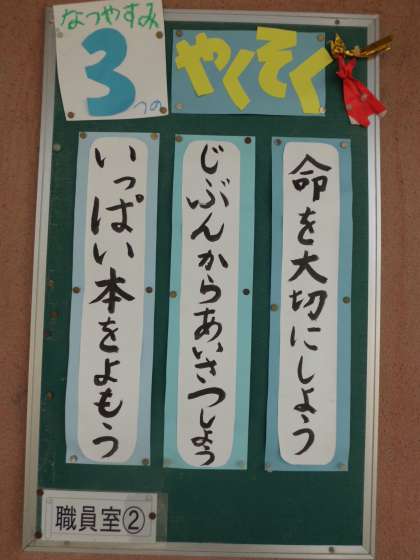 なつやすみ
3つの
やくそく
命を大切にしよう
じぶんからあいさつしよう
いっぱい本をよもう
職員室②